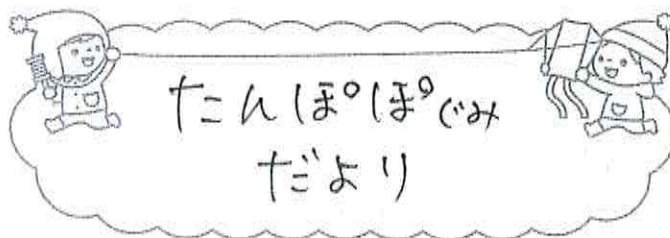 たんぽぽぐみ
だより